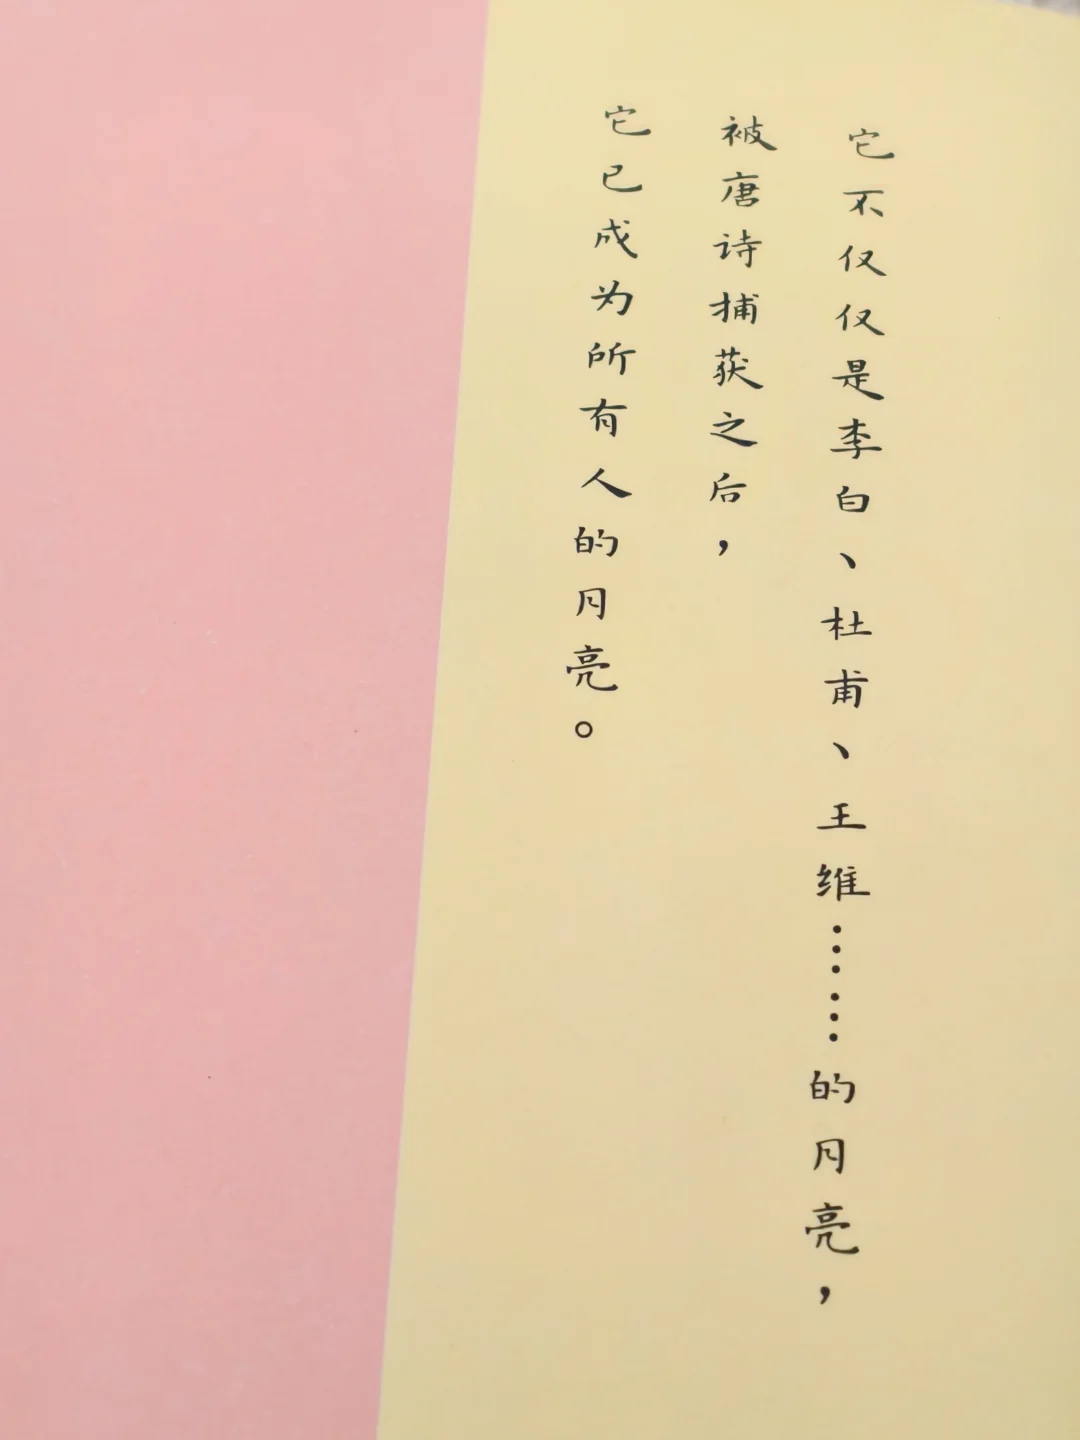 它不仅仅是李白、杜甫、王维……的月亮，
被唐诗捕获之后，
它已成为所有人的月亮。